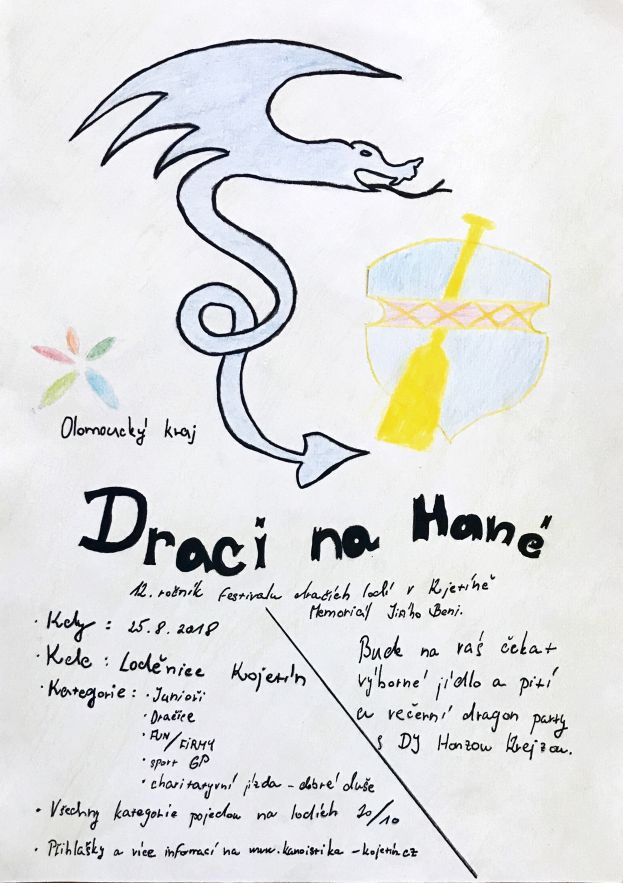 Olomoucký kraj
Draci na Hané
12. ročník Festivalu dračích lodí v Kjetíně
Memoriál Jiřího Beni.
· Kdy : 25.8.2018
· Kde : Loděnice Kojetín
· Kategorie : · Junioři
· Dračice
· FUN/FiRMY
· sport GP
· charitaryvní jízda - dobré duše
· Všechny kategorie pojedou na lodích 20/10
· Přihlášky a více informací na www.kanoistika-kojetin.cz
Bude na vás čekat
výborné jídlo a pití
a večerní dragon party
s DJ Honzou Krejzou.